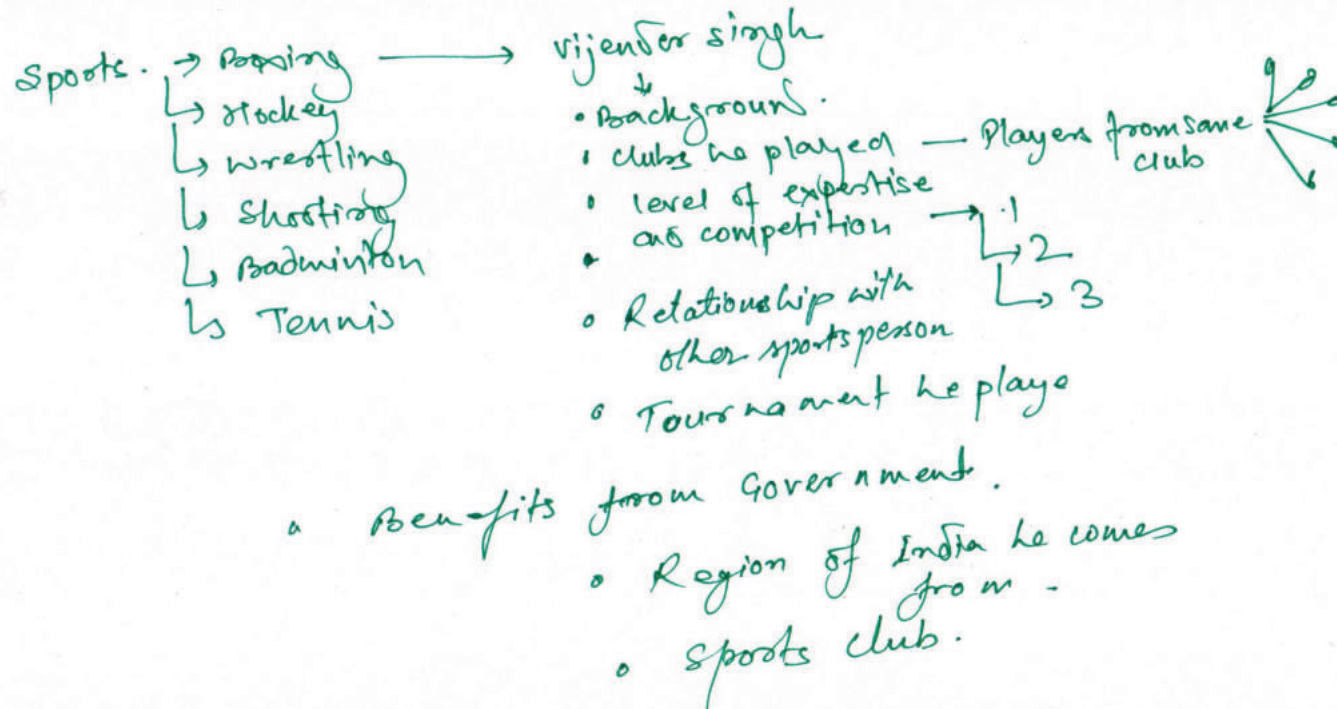 Sports. → Boxing → Vijender Singh
↳ Hockey
↳ Wrestling
↳ Shooting
↳ Badminton
↳ Tennis
• Background.
• Clubs he played — Players from same
club
• level of expertise
and competition → .1
↳ 2
↳ 3
•
• Relationship with
other sportsperson
• Tournament he playe
• Benefits from Government.
• Region of India he comes
from -
• Sports club.